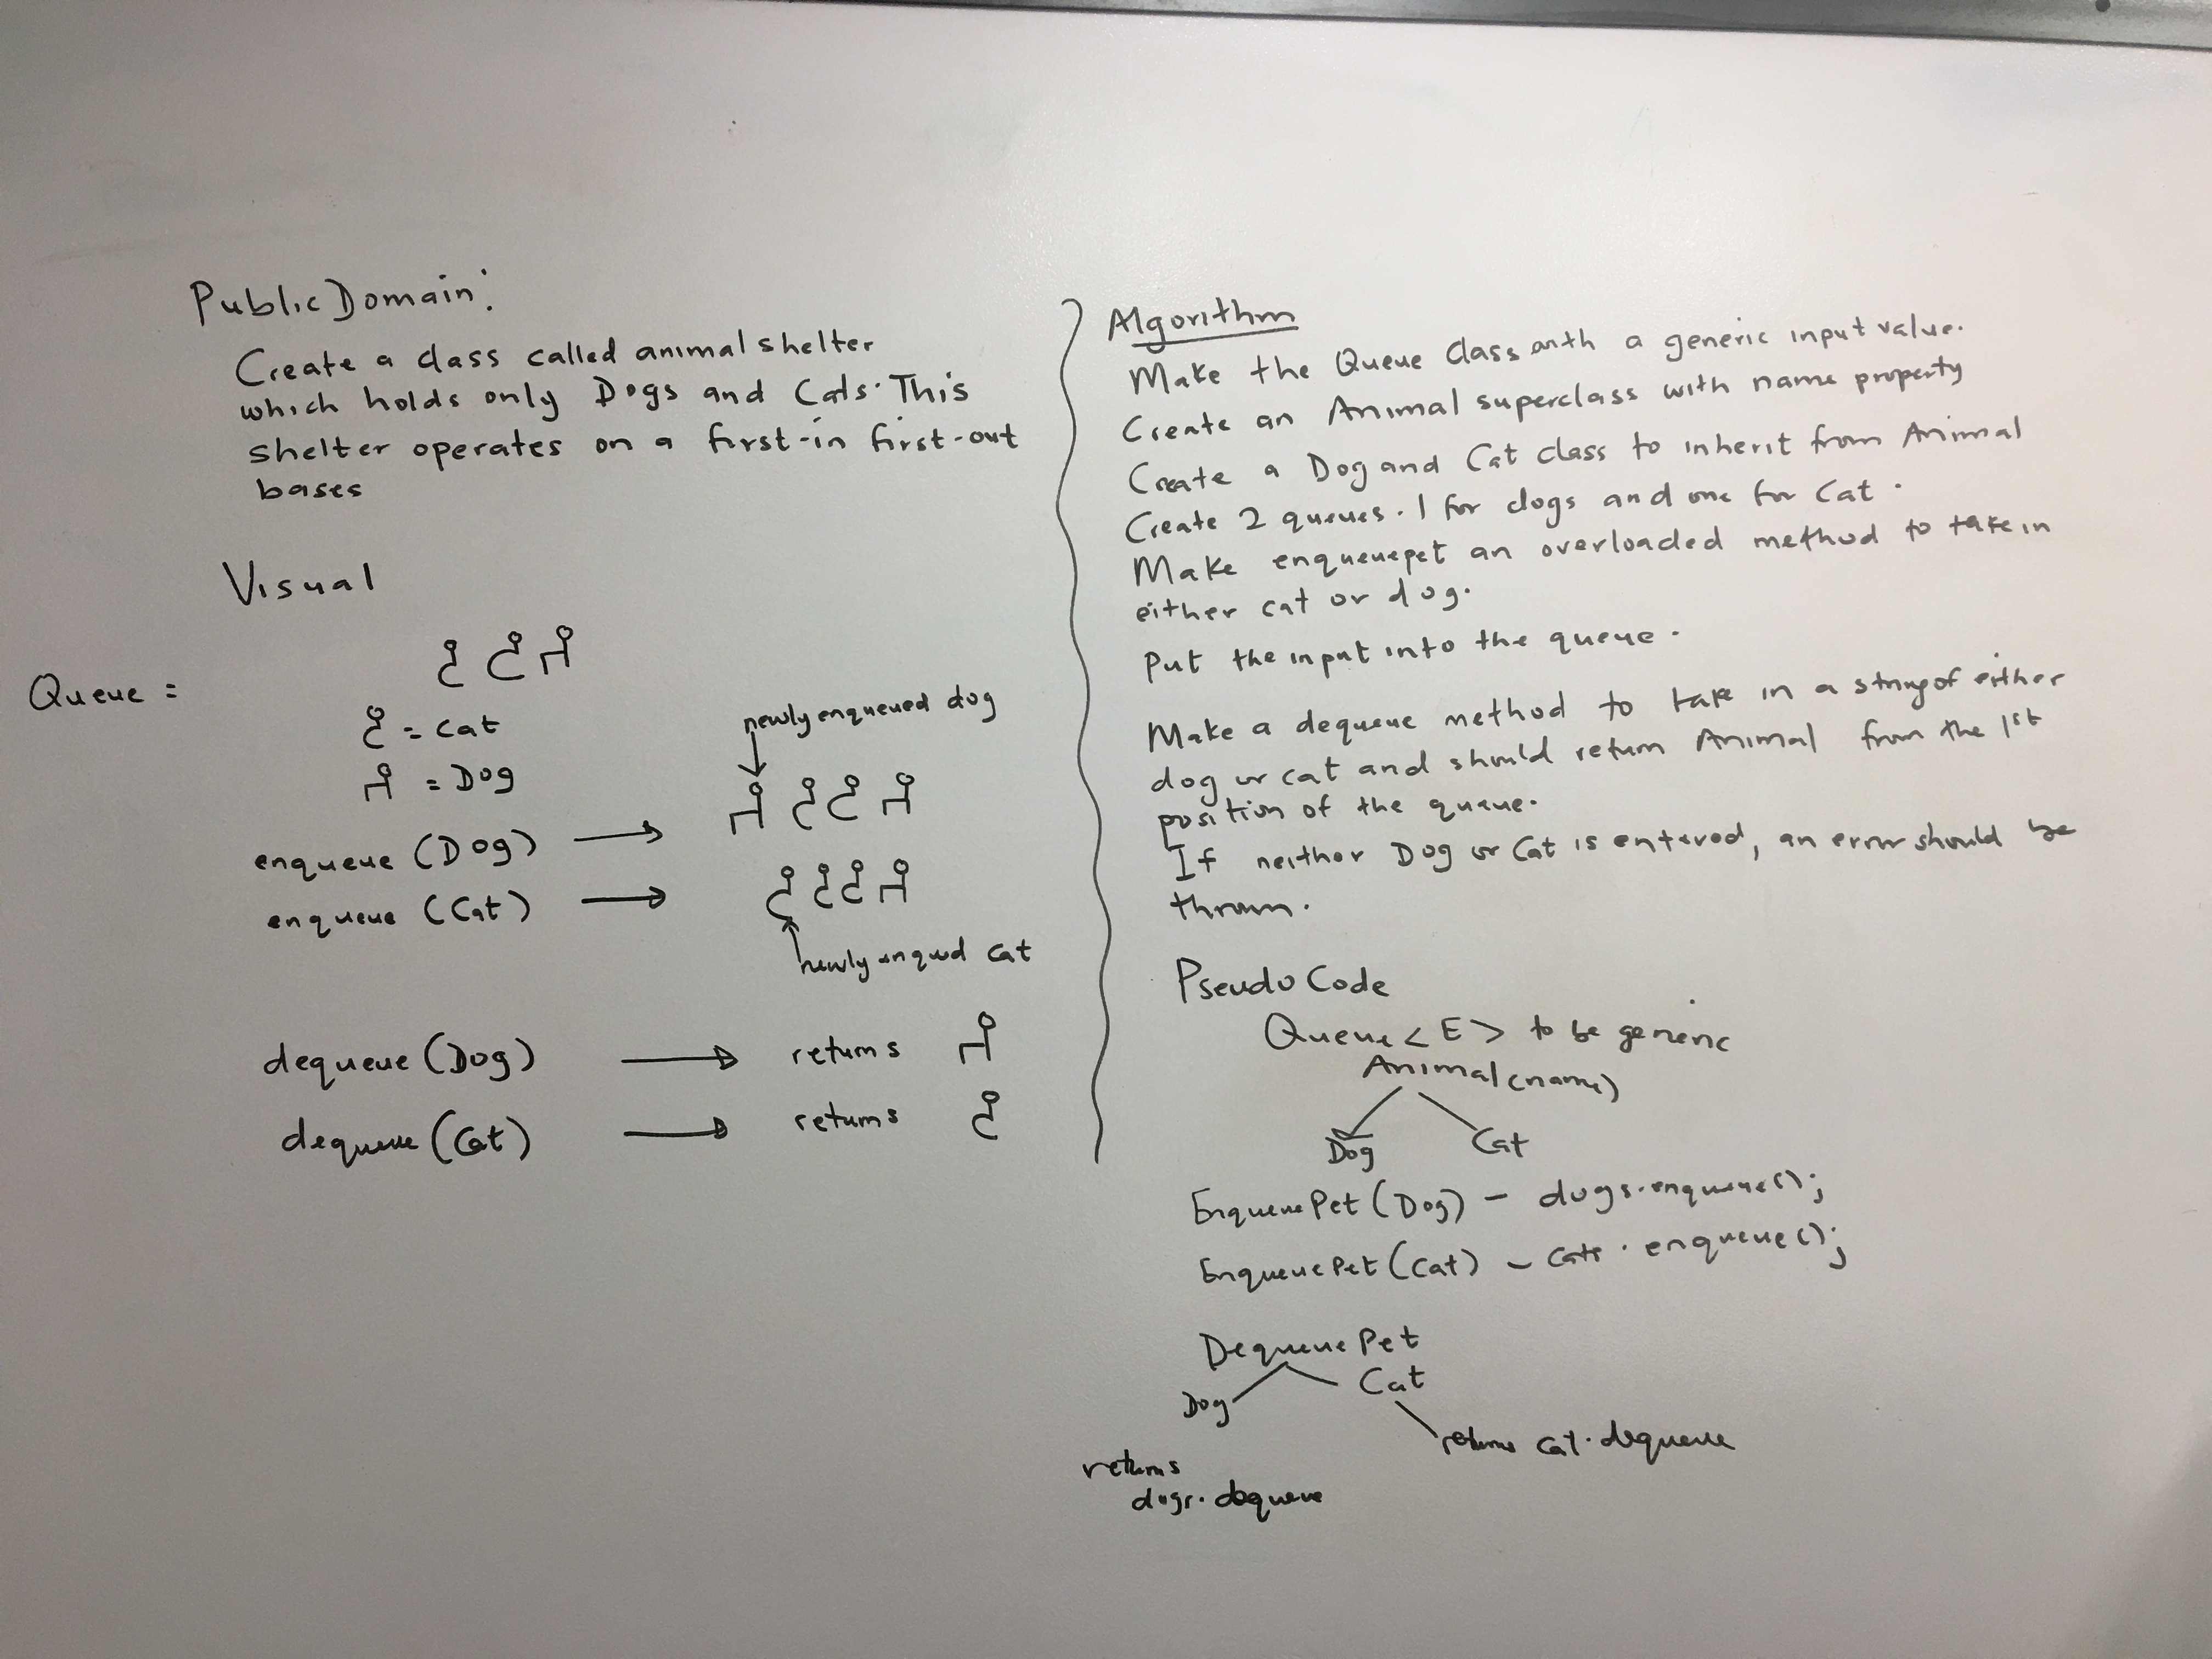 Public Domain:
Create a class called animal shelter
which holds only Dogs and Cats. This
shelter operates on a first-in first-out
bases
Visual
Queue =
= cat
= Dog
newly enqueued dog
enqueue (Dog)
enqueue (Cat)
newly enqued cat
dequeue (Dog) returns
dequeue (Cat) returns
Algorithm
Make the Queue class with a generic input value.
Create an Animal superclass with name property
Create a Dog and Cat class to inherit from Animal
Create 2 queues. 1 for dogs and one for Cat.
Make enqueuepet an overloaded method to take in
either cat or dog.
Put the input into the queue.
Make a dequeue method to take in a string of either
dog or cat and should return Animal from the 1st
position of the queue.
If neither Dog or Cat is entered, an error should be
thrown.
Pseudo Code
Queue <E> to be generic
Animal (name)
Dog Cat
EnqueuePet (Dog) - dogs.enqueue();
EnqueuePet (Cat) - cats.enqueue();
DequeuePet
Dog Cat
returns cat.dequeue
returns
dogs.dequeue